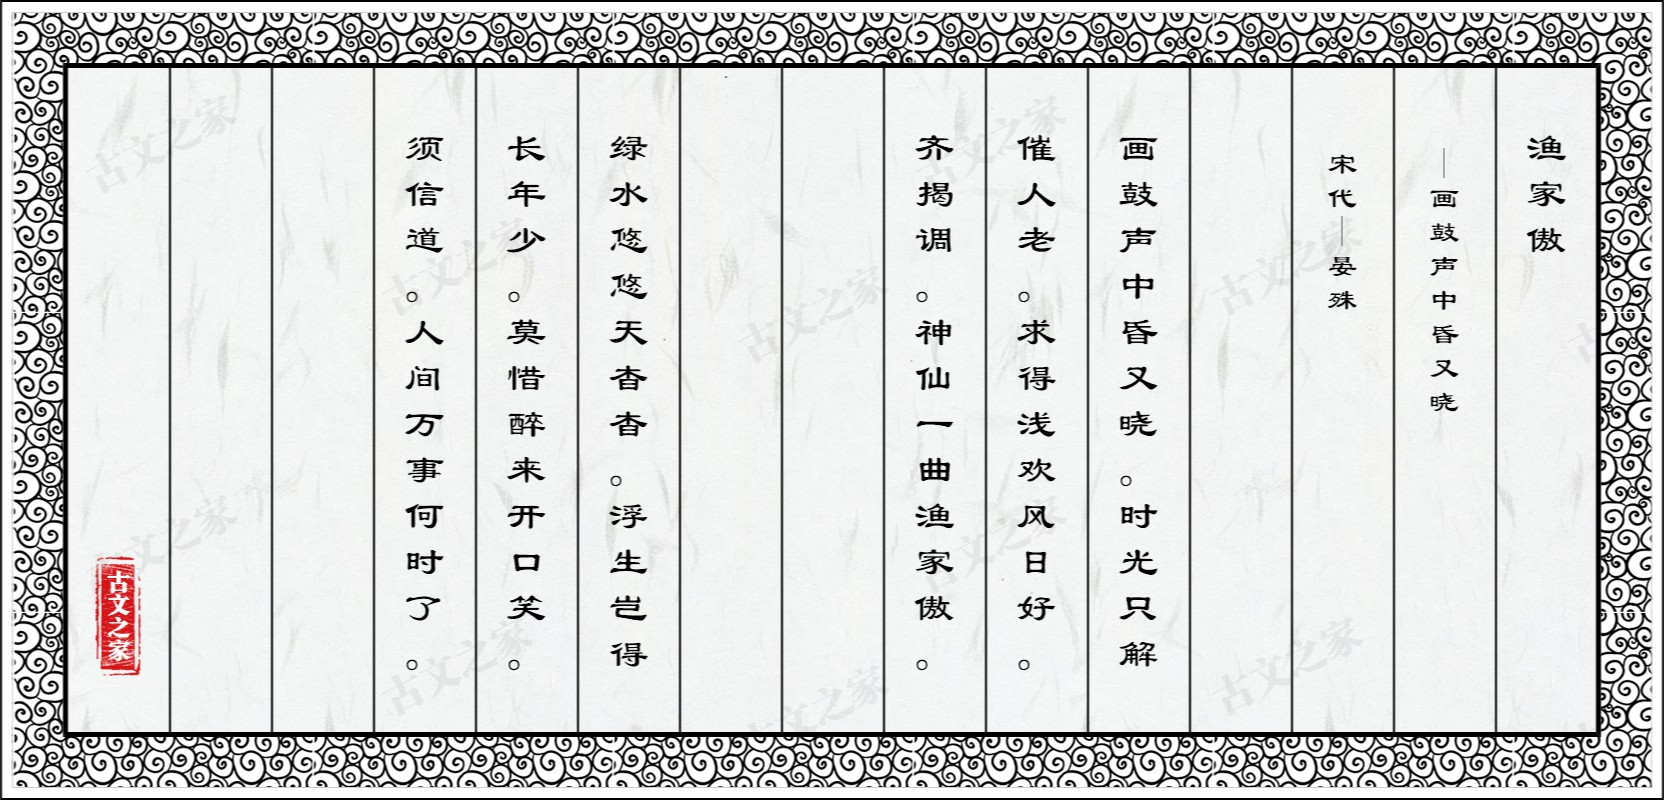 渔家傲
—画鼓声中昏又晓
宋代—晏殊
画鼓声中昏又晓。时光只解
催人老。求得浅欢风日好。
齐揭调。神仙一曲渔家傲。
绿水悠悠天杳杳。浮生岂得
长年少。莫惜醉来开口笑。
须信道。人间万事何时了。
古文之家